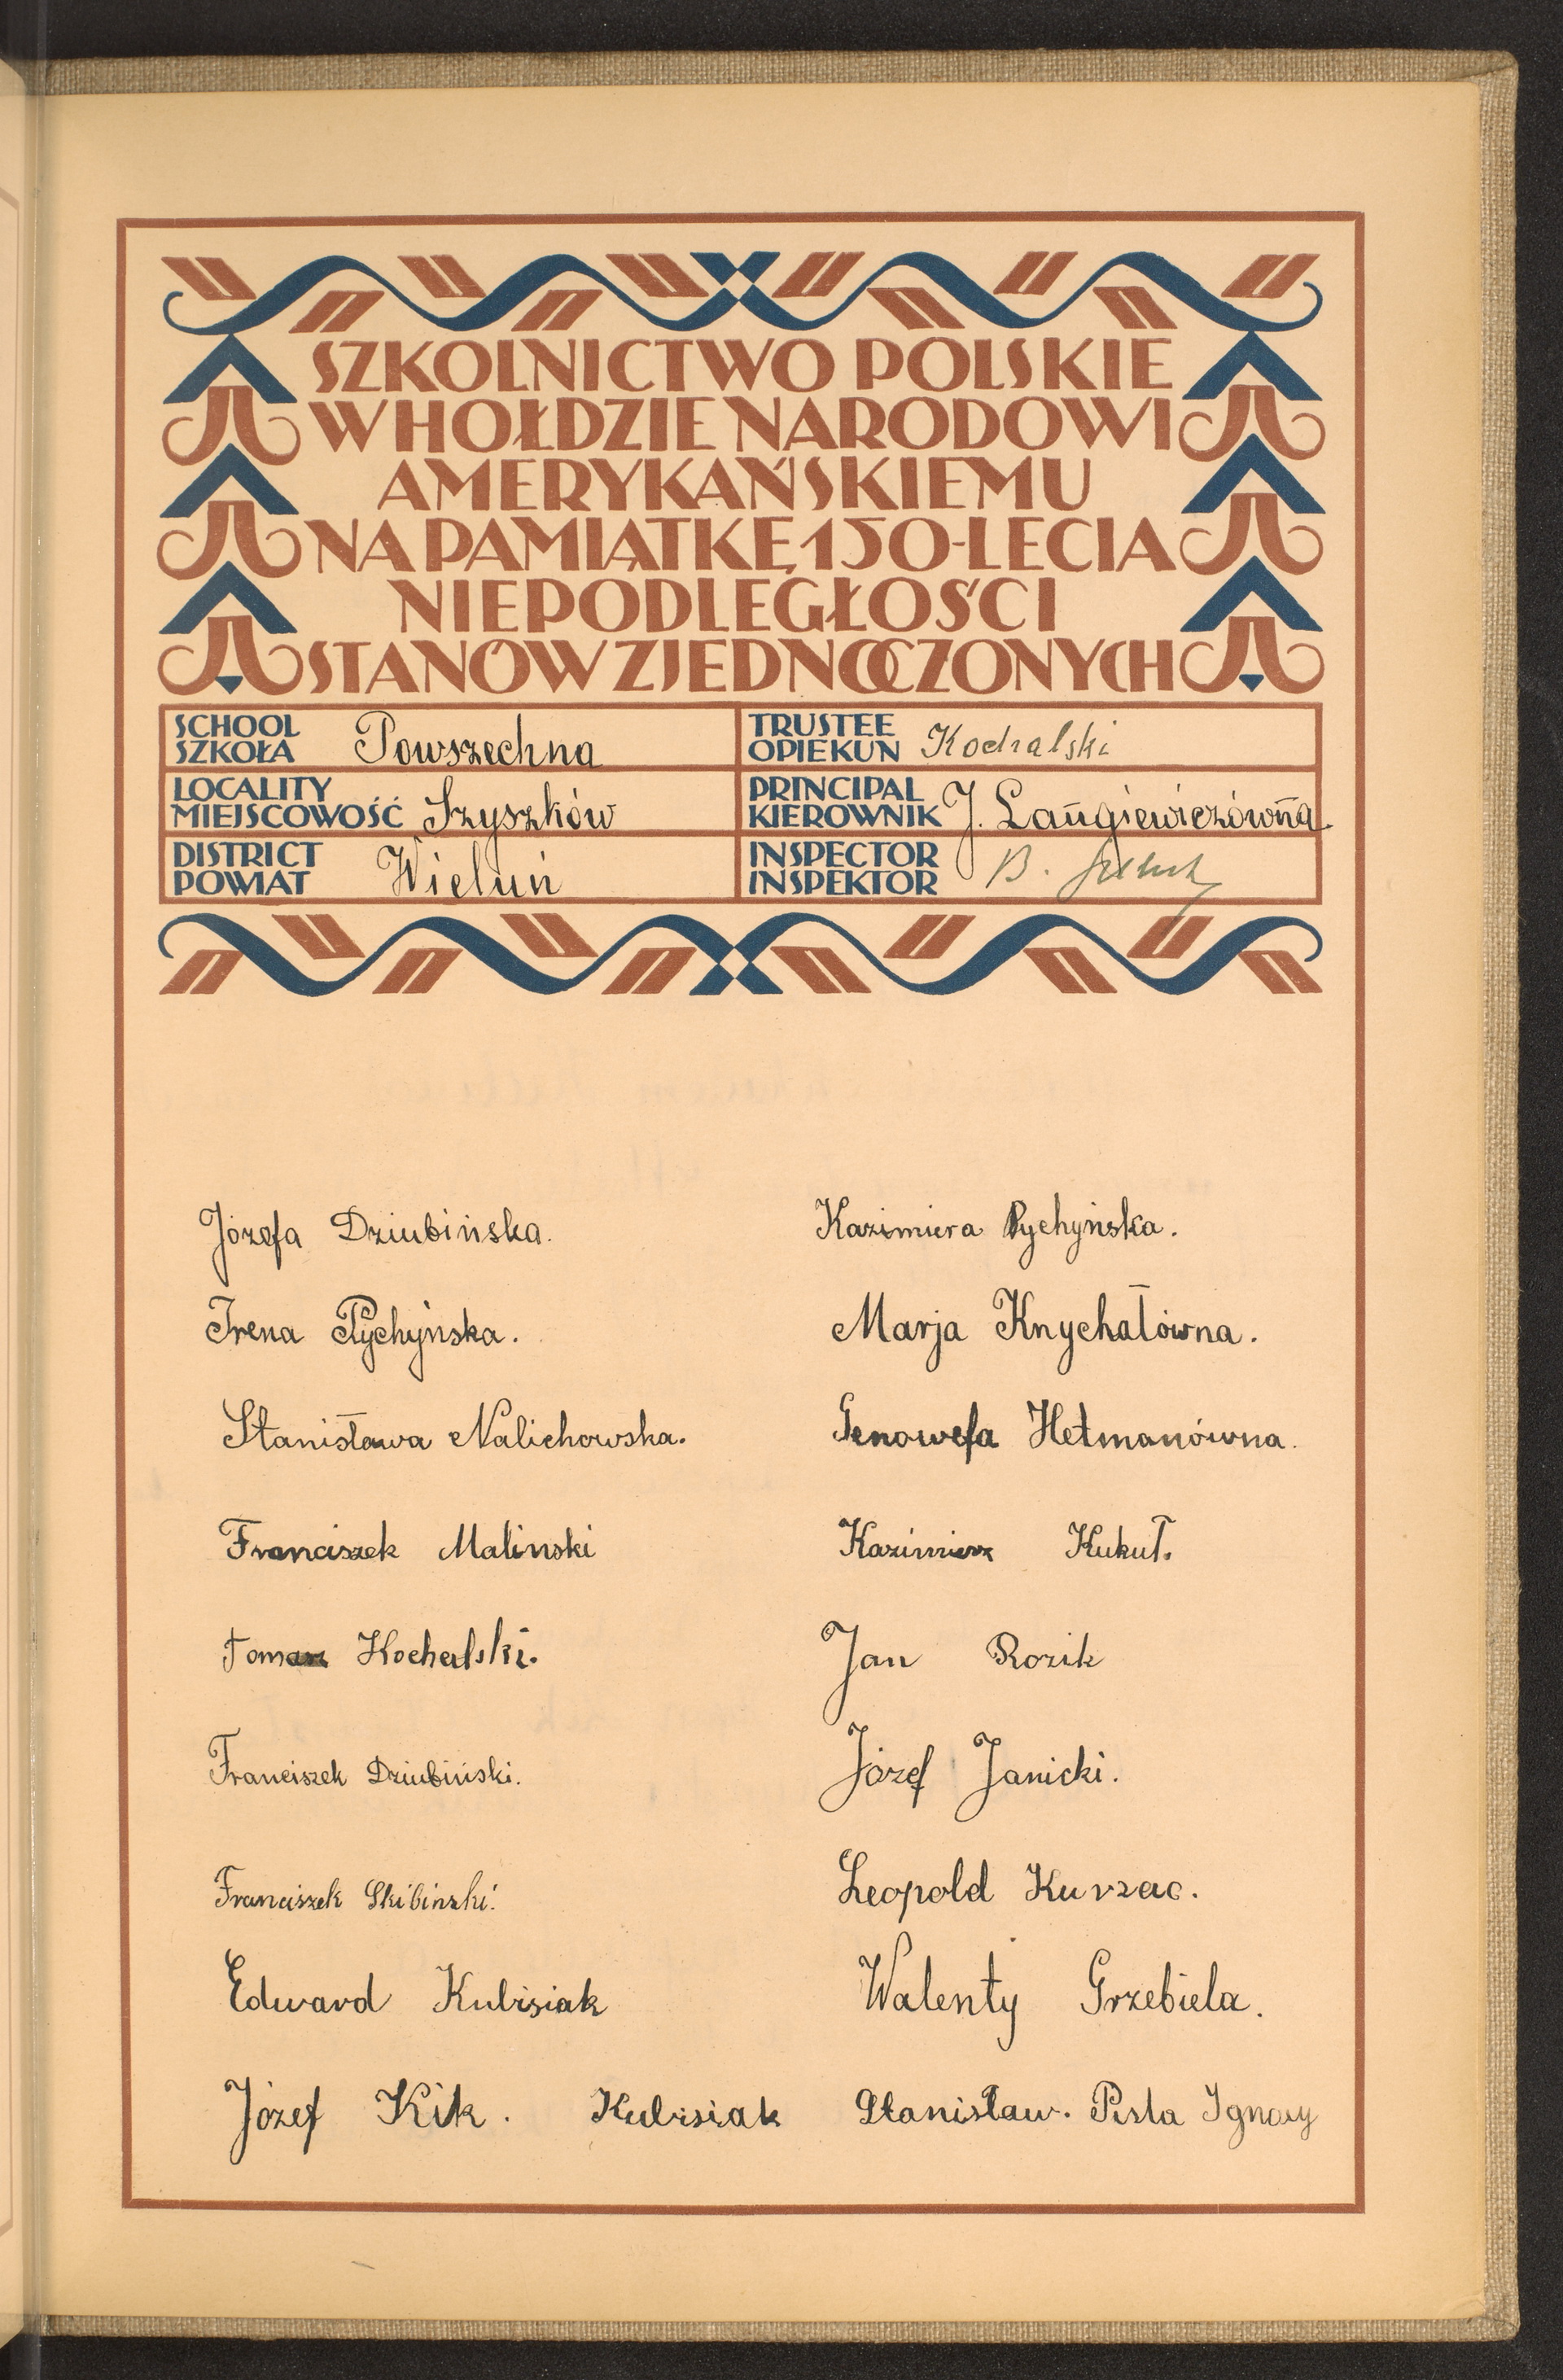 SZKOLNICTWO POLSKIE
W HOŁDZIE NARODOWI
AMERYKAŃSKIEMU
NA PAMIĄTKĘ 150-LECIA
NIEPODLEGŁOŚCI
STANÓW ZJEDNOCZONYCH
SCHOOL
SZKOŁA Powszechna
TRUSTEE
OPIEKUN Kochalski
LOCALITY
MIEJSCOWOŚĆ Szyszków
PRINCIPAL
KIEROWNIK J. Langiewiczówna.
DISTRICT
POWIAT Wieluń
INSPECTOR
INSPEKTOR B.
Józefa Dziubińska.
Kazimiera Pychyńska.
Irena Pychyńska.
Marja Knychałówna.
Stanisława Nalichowska.
Genowefa Hetmanówna.
Franciszek Malinski
Kazimierz Kukuł.
Tomasz Kochalski.
Jan Rozik
Franciszek Dziubiński.
Józef Janicki.
Franciszek Skibinski.
Leopold Kurzac.
Edward Kubisiak
Walenty Grzebiela.
Józef Kik. Kubisiak Stanisław. Pista Ignacy